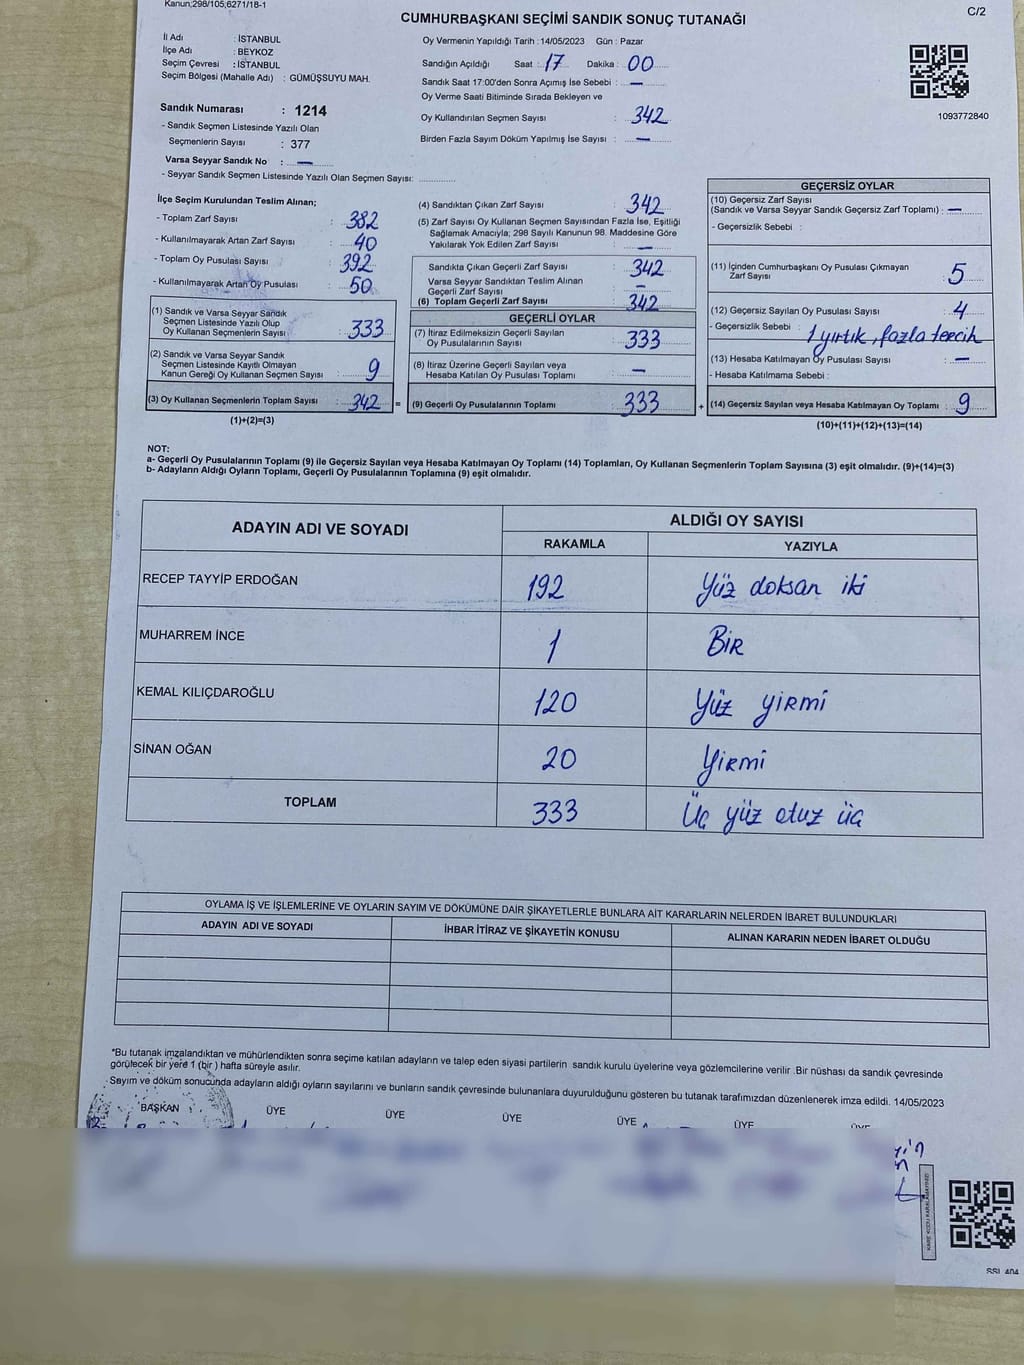 Kanun;298/105,6271/18-1
C/2
CUMHURBAŞKANI SEÇİMİ SANDIK SONUÇ TUTANAĞI
İl Adı : İSTANBUL
İlçe Adı : BEYKOZ
Seçim Çevresi : İSTANBUL
Seçim Bölgesi (Mahalle Adı) : GÜMÜŞSUYU MAH.
Sandık Numarası : 1214
- Sandık Seçmen Listesinde Yazılı Olan
Seçmenlerin Sayısı : 377
Varsa Seyyar Sandık No : —
- Seyyar Sandık Seçmen Listesinde Yazılı Olan Seçmen Sayısı:
Oy Vermenin Yapıldığı Tarih :14/05/2023 Gün : Pazar
Sandığın Açıldığı Saat : 17 Dakika : 00
Sandık Saat 17:00'den Sonra Açılmış İse Sebebi : —
Oy Verme Saati Bitiminde Sırada Bekleyen ve
Oy Kullandırılan Seçmen Sayısı : 342
Birden Fazla Sayım Döküm Yapılmış İse Sayısı : —
1093772840
İlçe Seçim Kurulundan Teslim Alınan;
- Toplam Zarf Sayısı : 382
- Kullanılmayarak Artan Zarf Sayısı : 40
- Toplam Oy Pusulası Sayısı : 392
- Kullanılmayarak Artan Oy Pusulası : 50
(1) Sandık ve Varsa Seyyar Sandık
Seçmen Listesinde Yazılı Olup
Oy Kullanan Seçmenlerin Sayısı : 333
(2) Sandık ve Varsa Seyyar Sandık
Seçmen Listesinde Kayıtlı Olmayan
Kanun Gereği Oy Kullanan Seçmen Sayısı : 9
(3) Oy Kullanan Seçmenlerin Toplam Sayısı : 342 =
(1)+(2)=(3)
(4) Sandıktan Çıkan Zarf Sayısı : 342
(5) Zarf Sayısı Oy Kullanan Seçmen Sayısından Fazla İse, Eşitliği
Sağlamak Amacıyla; 298 Sayılı Kanunun 98. Maddesine Göre
Yakılarak Yok Edilen Zarf Sayısı : —
Sandıkta Çıkan Geçerli Zarf Sayısı : 342
Varsa Seyyar Sandıktan Teslim Alınan
Geçerli Zarf Sayısı : —
(6) Toplam Geçerli Zarf Sayısı : 342
GEÇERLİ OYLAR
(7) İtiraz Edilmeksizin Geçerli Sayılan
Oy Pusulalarının Sayısı : 333
(8) İtiraz Üzerine Geçerli Sayılan veya
Hesaba Katılan Oy Pusulası Toplamı : —
(9) Geçerli Oy Pusulalarının Toplamı : 333 +
GEÇERSİZ OYLAR
(10) Geçersiz Zarf Sayısı
(Sandık ve Varsa Seyyar Sandık Geçersiz Zarf Toplamı) : —
- Geçersizlik Sebebi :
(11) İçinden Cumhurbaşkanı Oy Pusulası Çıkmayan
Zarf Sayısı : 5
(12) Geçersiz Sayılan Oy Pusulası Sayısı : 4
- Geçersizlik Sebebi : 1 yırtık, fazla tercih
(13) Hesaba Katılmayan Oy Pusulası Sayısı : —
- Hesaba Katılmama Sebebi :
(14) Geçersiz Sayılan veya Hesaba Katılmayan Oy Toplamı : 9
(10)+(11)+(12)+(13)=(14)
NOT:
a- Geçerli Oy Pusulalarının Toplamı (9) ile Geçersiz Sayılan veya Hesaba Katılmayan Oy Toplamı (14) Toplamları, Oy Kullanan Seçmenlerin Toplam Sayısına (3) eşit olmalıdır. (9)+(14)=(3)
b- Adayların Aldığı Oyların Toplamı, Geçerli Oy Pusulalarının Toplamına (9) eşit olmalıdır.
ADAYIN ADI VE SOYADI
ALDIĞI OY SAYISI
RAKAMLA YAZIYLA
RECEP TAYYİP ERDOĞAN 192 Yüz doksan iki
MUHARREM İNCE 1 Bir
KEMAL KILIÇDAROĞLU 120 Yüz yirmi
SİNAN OĞAN 20 Yirmi
TOPLAM 333 Üç yüz otuz üç
OYLAMA İŞ VE İŞLEMLERİNE VE OYLARIN SAYIM VE DÖKÜMÜNE DAİR ŞİKAYETLERLE BUNLARA AİT KARARLARIN NELERDEN İBARET BULUNDUKLARI
ADAYIN ADI VE SOYADI İHBAR İTİRAZ VE ŞİKAYETİN KONUSU ALINAN KARARIN NEDEN İBARET OLDUĞU
*Bu tutanak imzalandıktan ve mühürlendikten sonra seçime katılan adayların ve talep eden siyasi partilerin sandık kurulu üyelerine veya gözlemcilerine verilir .Bir nüshası da sandık çevresinde
görülecek bir yere 1 (bir ) hafta süreyle asılır.
Sayım ve döküm sonucunda adayların aldığı oyların sayılarını ve bunların sandık çevresinde bulunanlara duyurulduğunu gösteren bu tutanak tarafımızdan düzenlenerek imza edildi. 14/05/2023
BAŞKAN ÜYE ÜYE ÜYE ÜYE ÜYE ÜYE